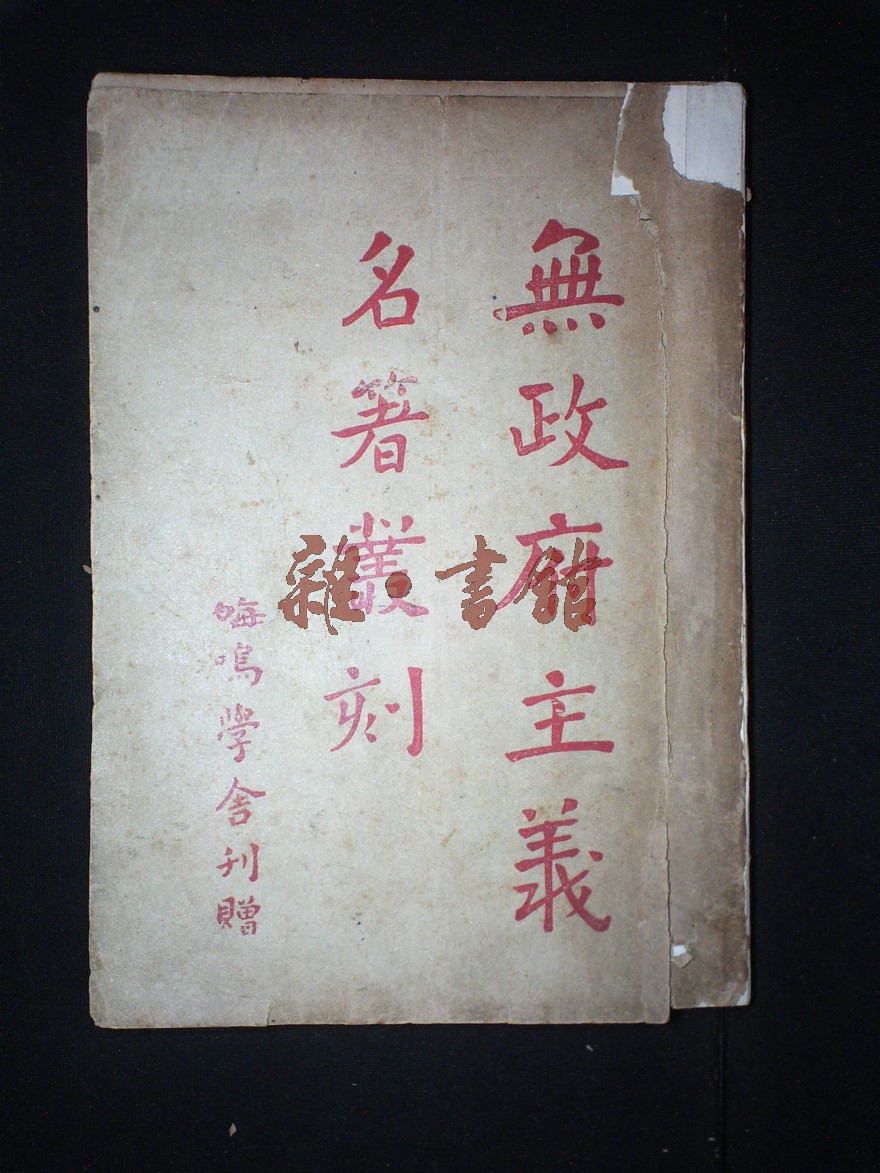 無政府主義
名著叢刻
晦鳴学舎刊贈
雜·書館